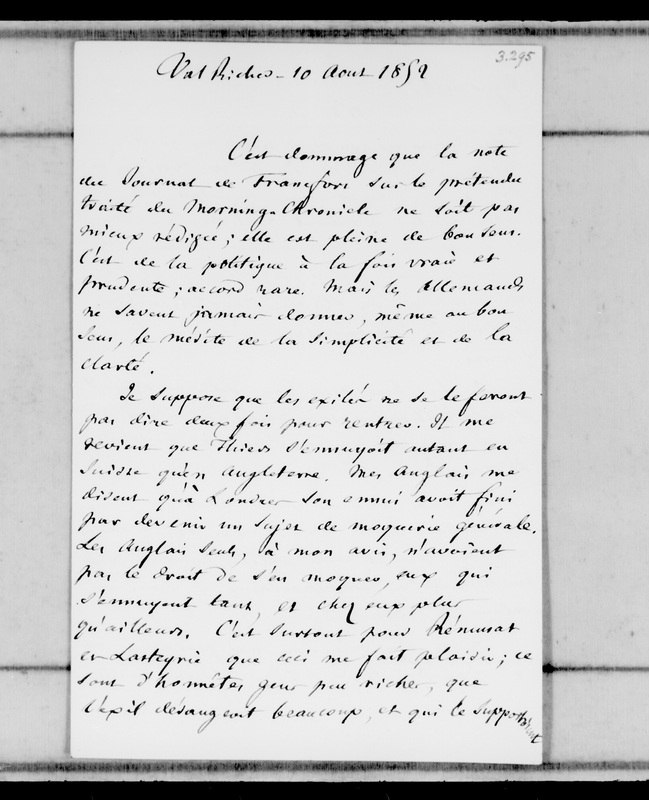 3.295
Val Richer - 10 Aout 1852
C'est dommage que la note
du Journal de Francfort sur le prétendu
traité du Morning-Chronicle ne soit pas
mieux rédigée ; elle est pleine de bon sens.
C'est de la politique à la fois vraie et
prudente ; accord rare. Mais les Allemands
ne savent jamais donner, même au bon
sens, le mérite de la simplicité et de la
clarté.
Je suppose que les exilés ne se le feront
pas dire deux fois pour rentrer. Il me
revient que Thiers s'ennuyoit autant en
Suisse qu'en Angleterre. Mes Anglais me
disent qu'à Londres son ennui avoit fini
par devenir un sujet de moquerie générale.
Les Anglais seuls, à mon avis, n'avoient
pas le droit de s'en moquer, eux qui
s'ennuyent tant, et chez eux plus
qu'ailleurs. C'est surtout pour Rémusat
et Lasteyrie que ceci me fait plaisir ; ce
sont d'honnêtes gens peu riches, que
l'exil dérangeoit beaucoup, et qui le supportoient